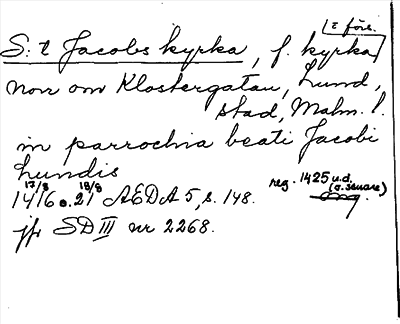 [t förs.
S:t Jacobs kyrka, f. kyrka]
norr om Klostergatan, Lund,
stad, Malm. l.
in parrochia beati Jacobi
Lundis
17/8 18/8 reg. 1425 u.d.
1416 o. 21 AEDA 5, s. 148. (o. senare)
jfr SD III nr 2268.